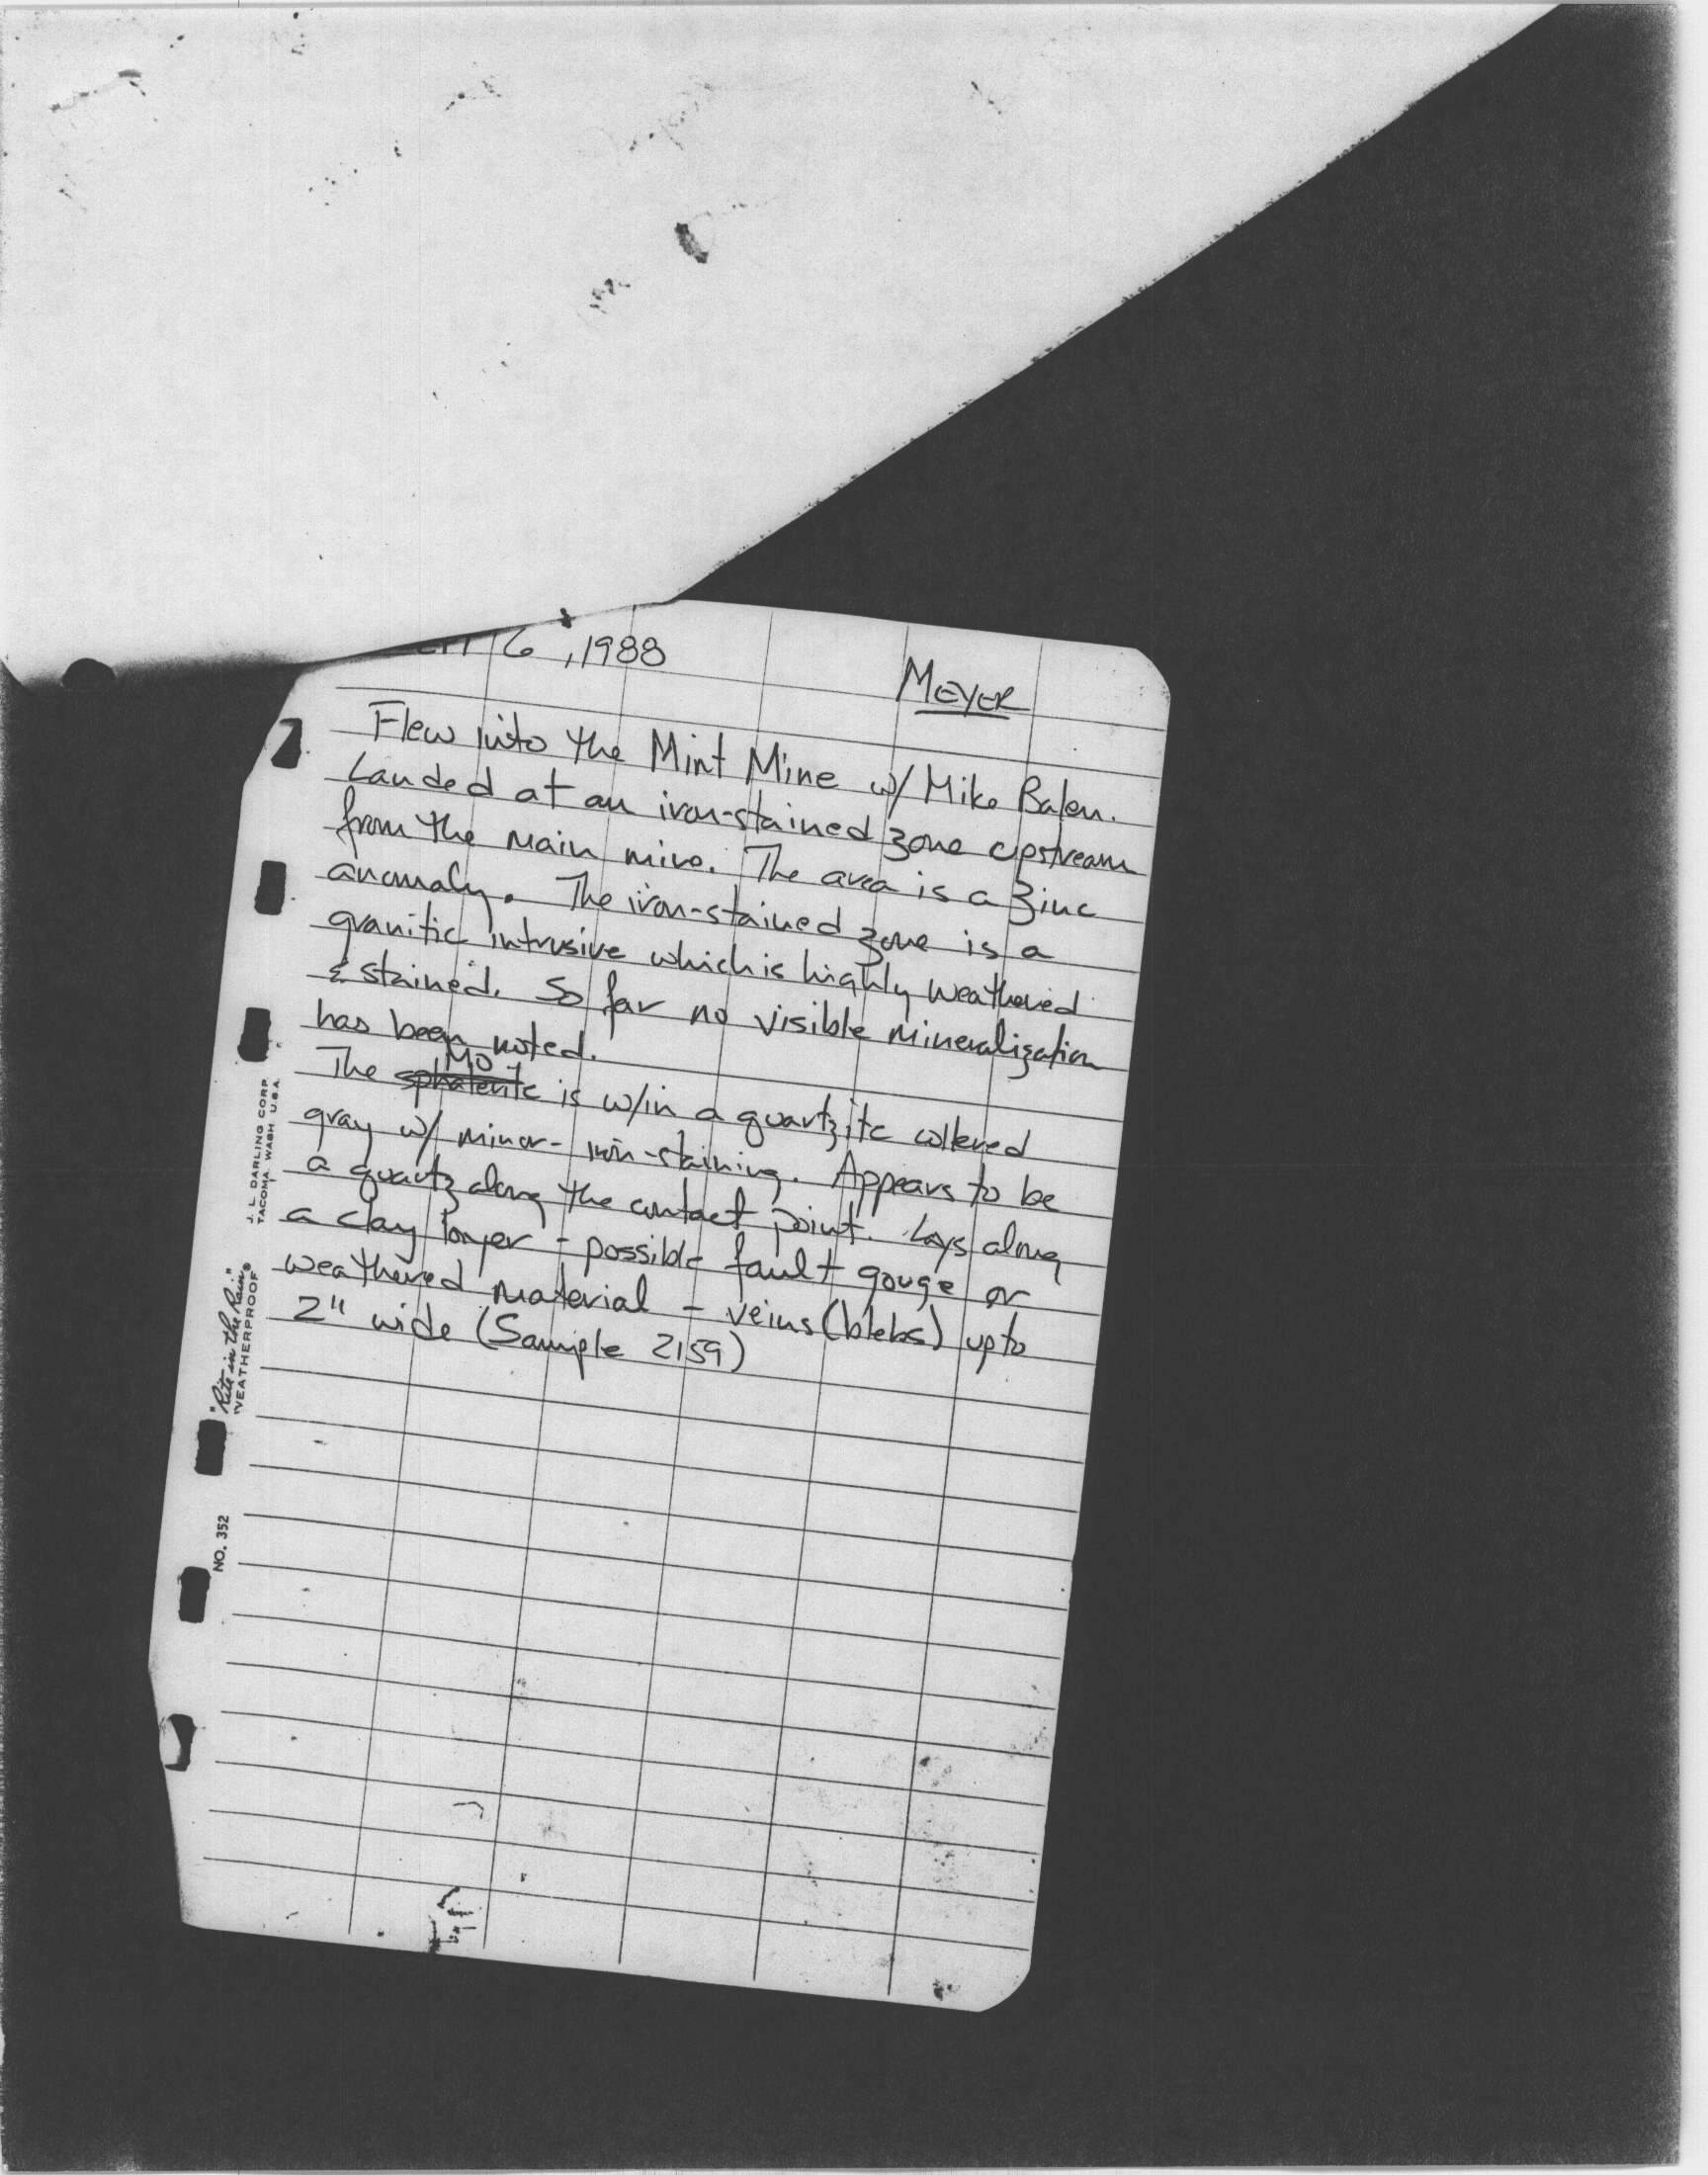 6, 1988
MEYER
Flew into the Mint Mine w/ Mike Balen.
Landed at an iron-stained zone upstream
from the main mine. The area is a zinc
anomaly. The iron-stained zone is a
granitic intrusive which is highly weathered
& stained. So far no visible mineralization
has been noted.
MO
The sphalerite is w/in a quartzite collered
gray w/ minor- iron-staining. Appears to be
a quartz along the contact point. Lays along
a clay layer - possible fault gouge or
weathered material - veins (blebs) up to
2" wide (Sample 2159)
J. L. DARLING CORP.
TACOMA, WASH U.S.A.
"Rite in the Rain"®
WEATHERPROOF
NO. 352